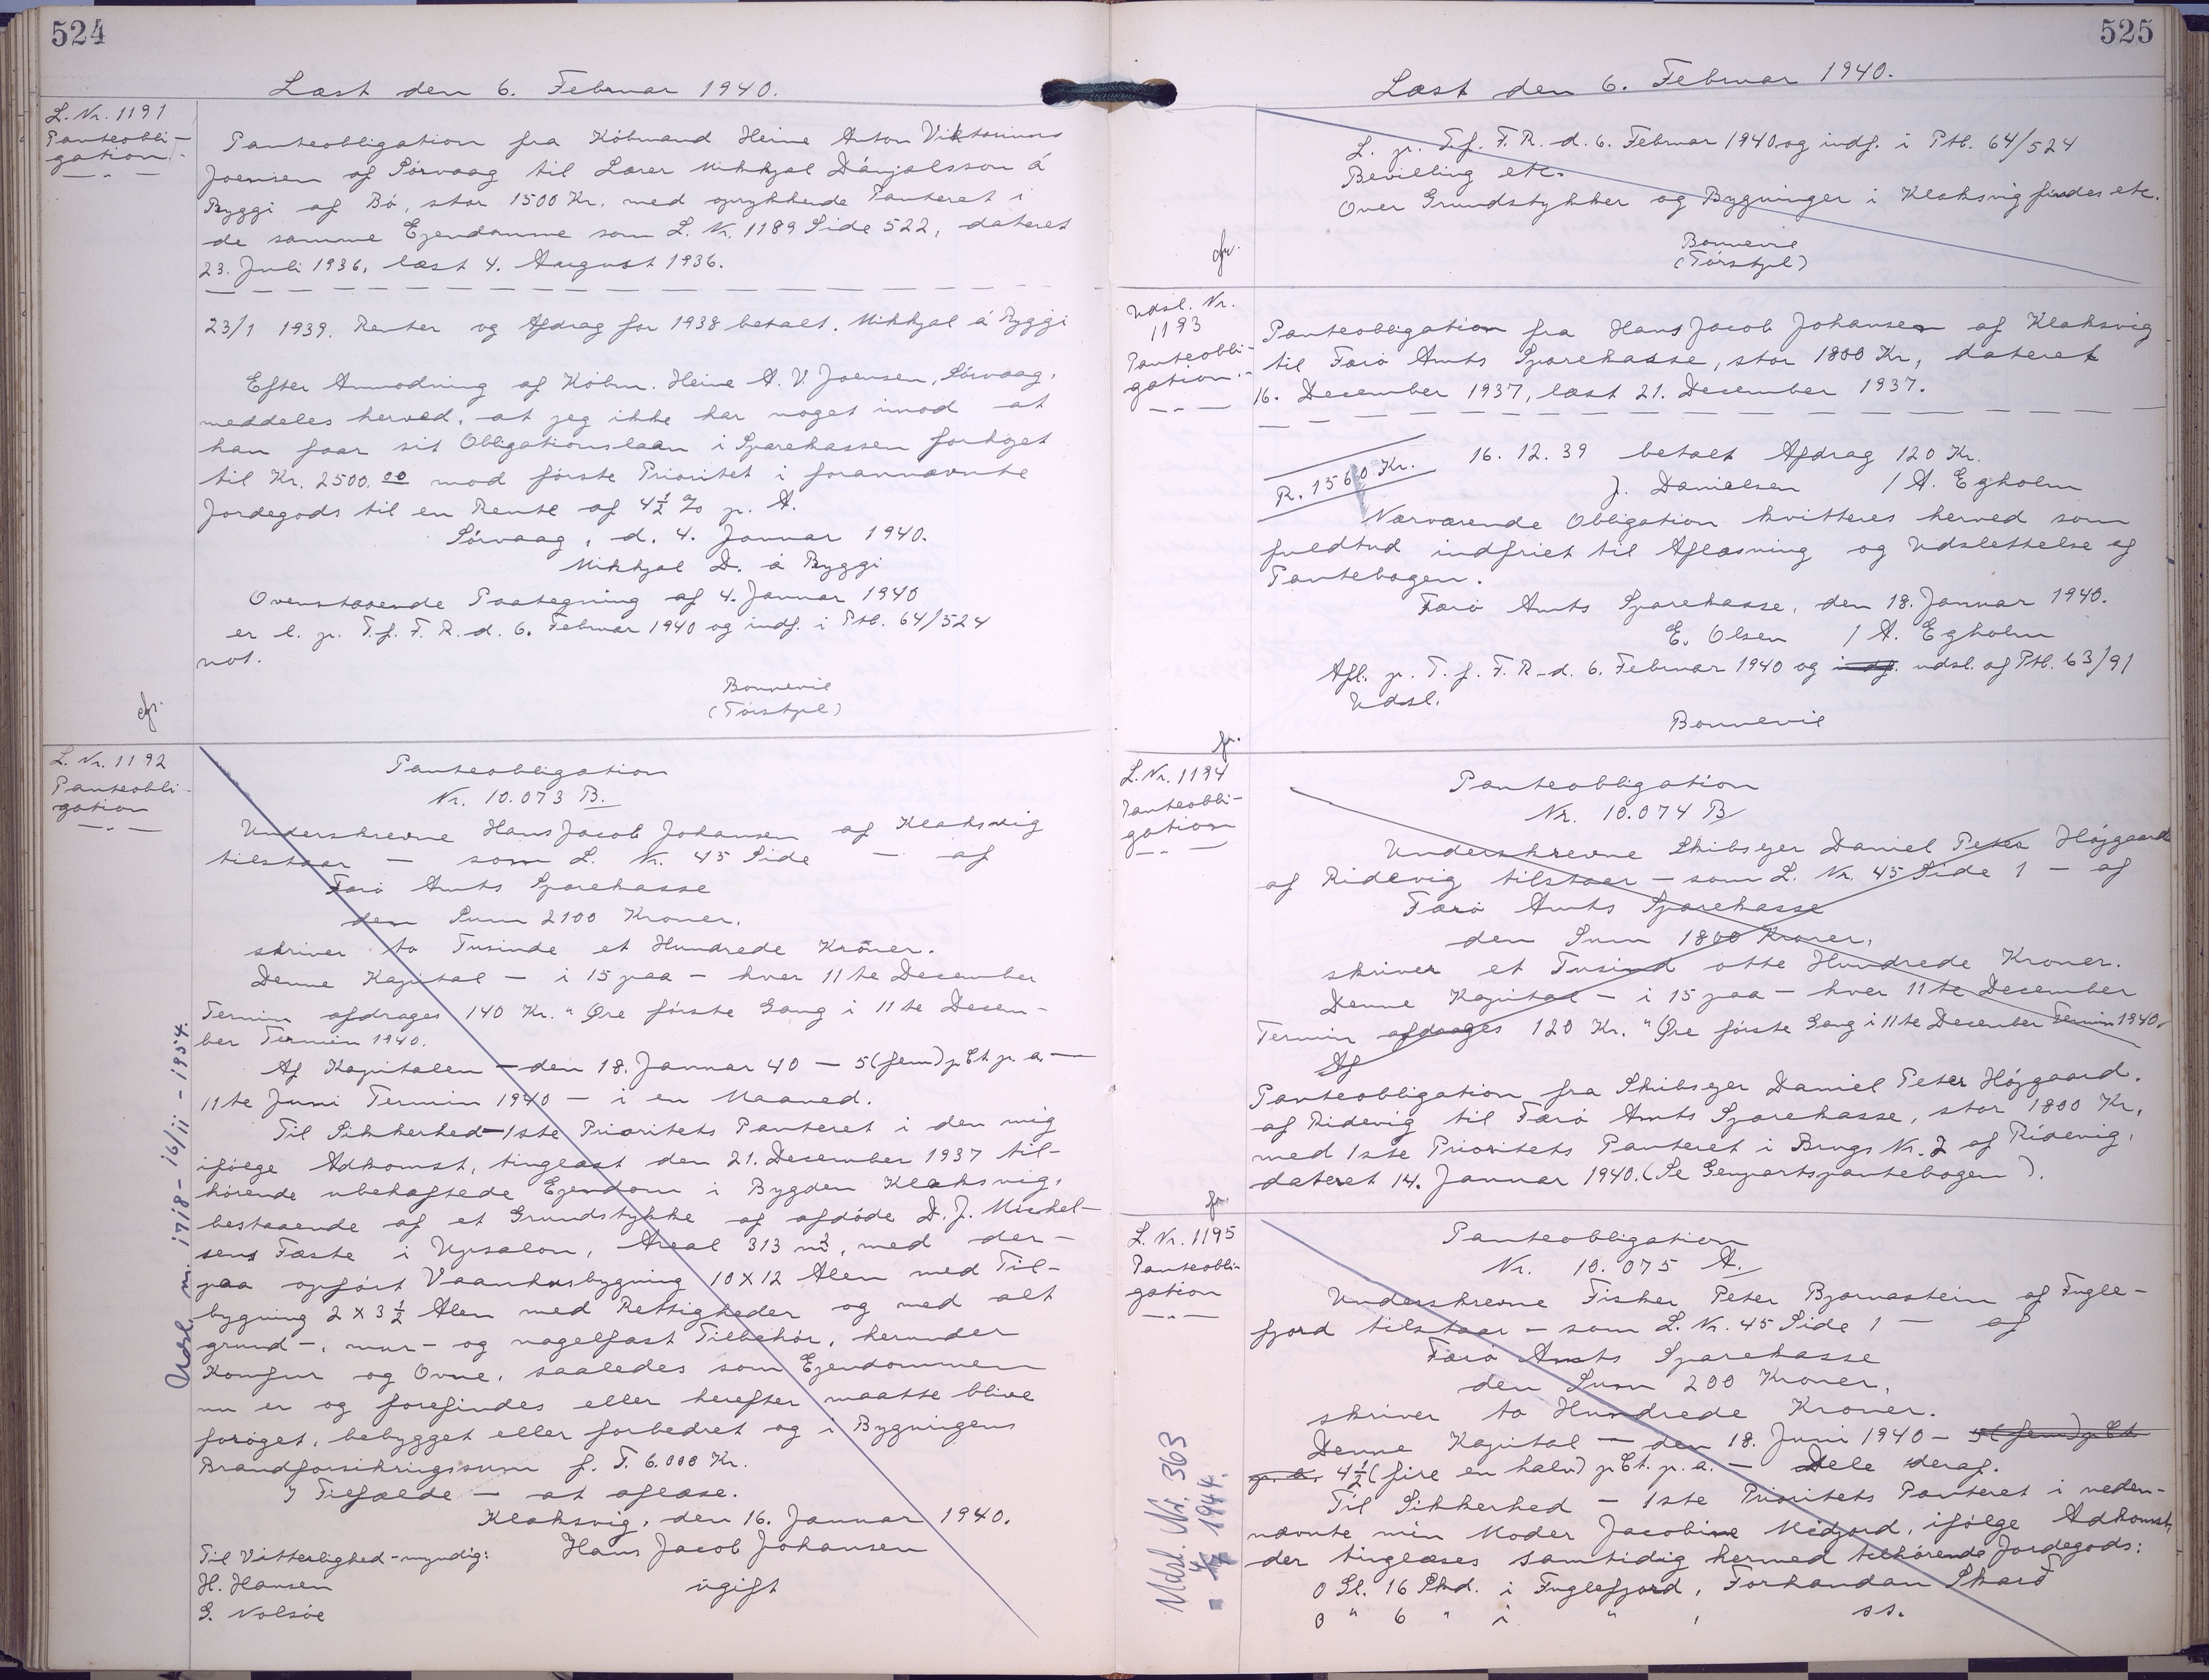 524
Læst den 6. Februar 1940.
L. Nr. 1191
Panteobli-
gation.-
Panteobligation fra Købmand Heine Anton Viktorinus
Joensen af Sörvaag til Lærer Mikkjal Dánjalsson á
Ryggi af Bö, stor 1500 Kr. med oprykkende Panteret i
de samme Ejendomme som L. Nr. 1189 Side 522, dateret
23. Juli 1936, læst 4. August 1936.
23/1 1939. Renter og Afdrag for 1938 betalt. Mikkjal á Ryggi
Efter Anmodning af Købm. Heine A. V. Joensen, Sörvaag,
meddeles herved, at jeg ikke har noget imod at
han faar sit Obligationslaan i Sparekassen forhöjet
til Kr. 2500.00 mod förste Prioritet i forannævnte
Jordegods til en Rente af 4½ % p. A.
Sörvaag, d. 4. Januar 1940.
Mikkjal D. á Ryggi
Ovenstaaende Paategning af 4. Januar 1940
er l. p. T. f. F. R. d. 6. Februar 1940 og indf. i Ptb. 64/524
not.
Bonnevie
(Törskjel)
cfr.
L. Nr. 1192
Panteobli-
gation
Panteobligation
Nr. 10.073 B.
Underskrevne Hans Jacob Johansen af Klaksvig
tilstaar — som L. Nr. 45 Side — af
Færö Amts Sparekasse
den Sum 2100 Kroner,
skriver to Tusinde et Hundrede Kroner.
Denne Kapital — i 15 paa — hver 11te December
Termin afdrages 140 Kr. " Øre förste Gang i 11te Decem-
ber Termin 1940.
Af Kapitalen — den 18. Januar 40 — 5 (fem) pCt. p. a. —
11te Juni Termin 1940 — i en Maaned.
Til Sikkerhed — 1ste Prioritets Panteret i den mig
ifölge Adkomst, tinglæst den 21. December 1937 til-
hörende ubehæftede Ejendom i Bygden Klaksvig,
bestaaende af et Grundstykke af afdöde D. J. Michel-
sens Fæste i Uppsalon, Areal 313 m², med der-
paa opfört Vaanhusbygning 10 x 12 Alen med Til-
bygning 2 x 3½ Alen med Rettigheder og med alt
grund-, mur- og nagelfast Tilbehör, herunder
Komfur og Ovne, saaledes som Ejendommen
nu er og forefindes eller herefter maatte blive
foröget, bebygget eller forbedret og i Bygningens
Brandforsikringssum f. T. 6.000 Kr.
I Tilfælde — at aflæse.
Klaksvig, den 16. Januar 1940.
Til Vitterlighed - myndig:
Hans Jacob Johansen
H. Hansen
ugift
G. Nolsöe
Udsl. nr. 1718 - 16/11 - 1954.
525
Læst den 6. Februar 1940.
L. p. T. f. F. R. d. 6. Februar 1940 og indf. i Ptb. 64/524
Bevilling etc.
Over Grundstykker og Bygninger i Klaksvig findes etc.
Bonnevie
(Törskjel)
cfr.
Udsl. Nr.
1193
Panteobli-
gation.-
Panteobligation fra Hans Jacob Johansen af Klaksvig
til Færö Amts Sparekasse, stor 1800 Kr, dateret
16. December 1937, læst 21. December 1937.
R. 1560 Kr.
16. 12. 39 betalt Afdrag 120 Kr.
J. Danielsen / A. Egholm
Nærværende Obligation kvitteres herved som
fuldtud indfriet til Aflæsning og Udslettelse af
Pantebogen.
Færö Amts Sparekasse, den 18. Januar 1940.
E. Olsen / A. Egholm
Afl. p. T. f. F. R. d. 6. Februar 1940 og indf. udsl. af Ptb. 63/91
Udsl.
Bonnevie
fr.
L. Nr. 1194
Panteobli-
gation
Panteobligation
Nr. 10.074 B
Underskrevne Skibsejer Daniel Peter Höjgaard
af Ridevig tilstaar — som L. Nr. 45 Side 1 — af
Færö Amts Sparekasse
den Sum 1800 Kroner,
skriver et Tusind otte Hundrede Kroner.
Denne Kapital — i 15 paa — hver 11te December
Termin afdrages 120 Kr. " Øre förste Gang i 11te December Termin 1940.
Af
Panteobligation fra Skibsejer Daniel Peter Höjgaard,
af Ridevig til Færö Amts Sparekasse, stor 1800 Kr,
med 1ste Prioritets Panteret i Brugs Nr. 2 af Ridevig,
dateret 14. Januar 1940. (Se Genpartspantebogen).
fr.
L. Nr. 1195
Panteobli-
gation
Panteobligation
Nr. 10.075 A.
Underskrevne Fisker Peter Bjarnastein af Fugle-
fjord tilstaar — som L. Nr. 45 Side 1 — af
Færö Amts Sparekasse
den Sum 200 Kroner,
skriver to Hundrede Kroner.
Denne Kapital — den 18. Juni 1940 — 5 (fem) pCt
p. a. 4½ (fire en halv) pCt. p. a. — Dele deraf.
Til Sikkerhed — 1ste Prioritets Panteret i neden-
nævnte min Moder Jacobine Midjord, ifölge Adkomst,
der tinglæses samtidig hermed tilhörende Jordegods:
0 Gl. 16 Skd. i Fuglefjord, Forhandan Skarð
0 " 6 " i " , ss.
Udsl. Nr. 363
1944.